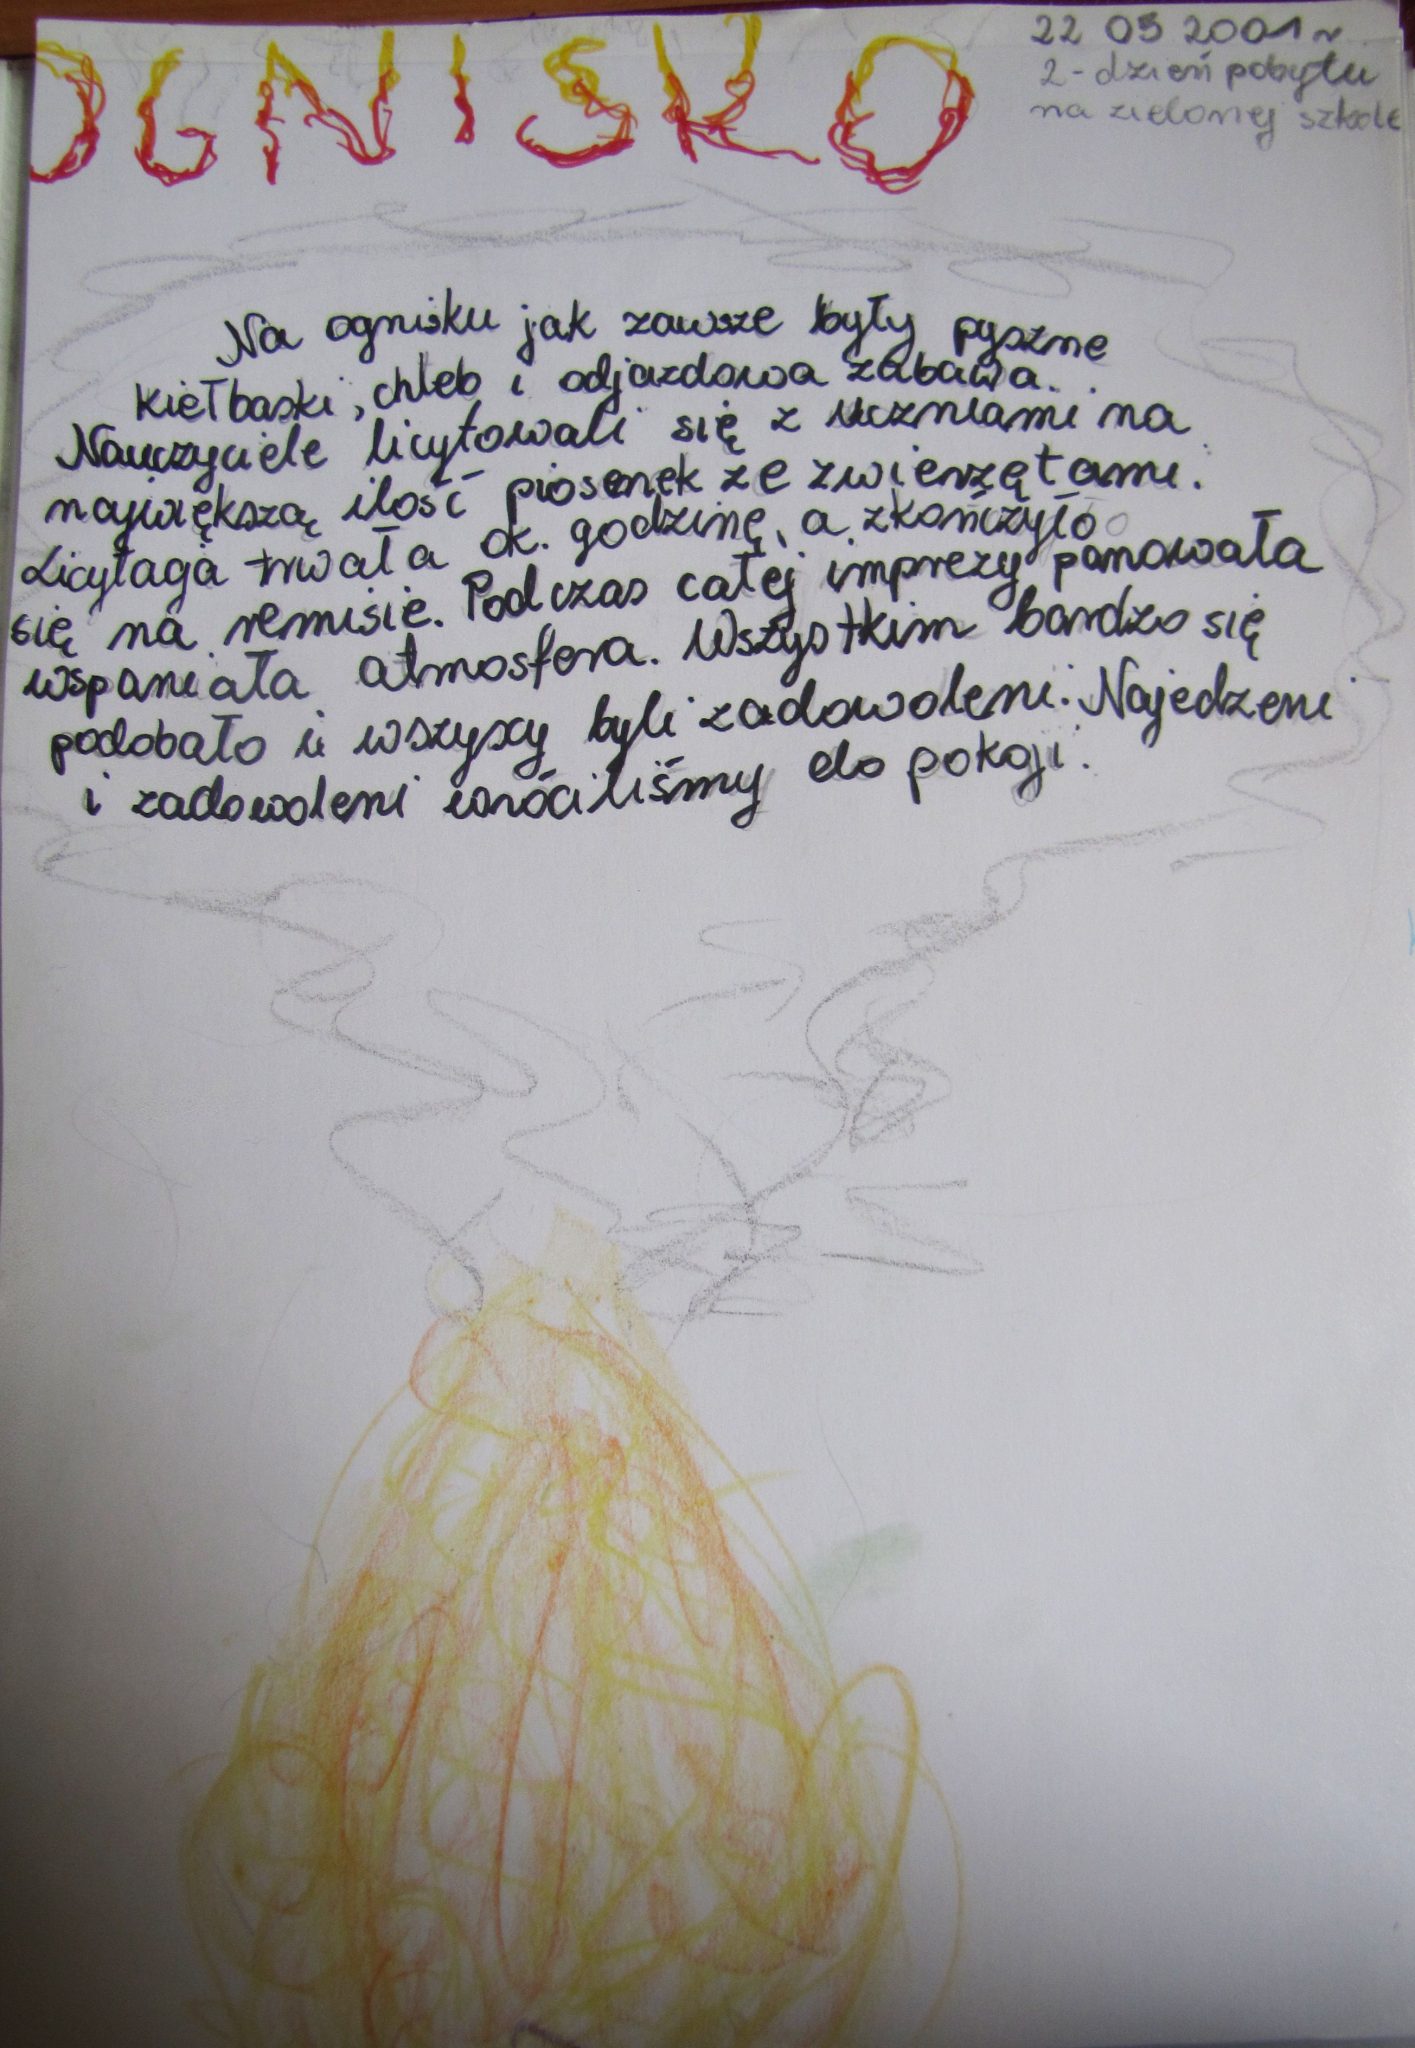 OGNISKO
22 05 2001 r
2 - dzień pobytu
na zielonej szkole
Na ognisku jak zawsze były pyszne
kiełbaski, chleb i odjazdowa zabawa.
Nauczyciele licytowali się z uczniami na
największą ilość piosenek ze zwierzętami.
Licytacja trwała ok. godzinę, a zkończyło
się na remisie. Podczas całej imprezy panowała
wspaniała atmosfera. Wszystkim bardzo się
podobało i wszyscy byli zadowoleni. Najedzeni
i zadowoleni wróciliśmy do pokoji.